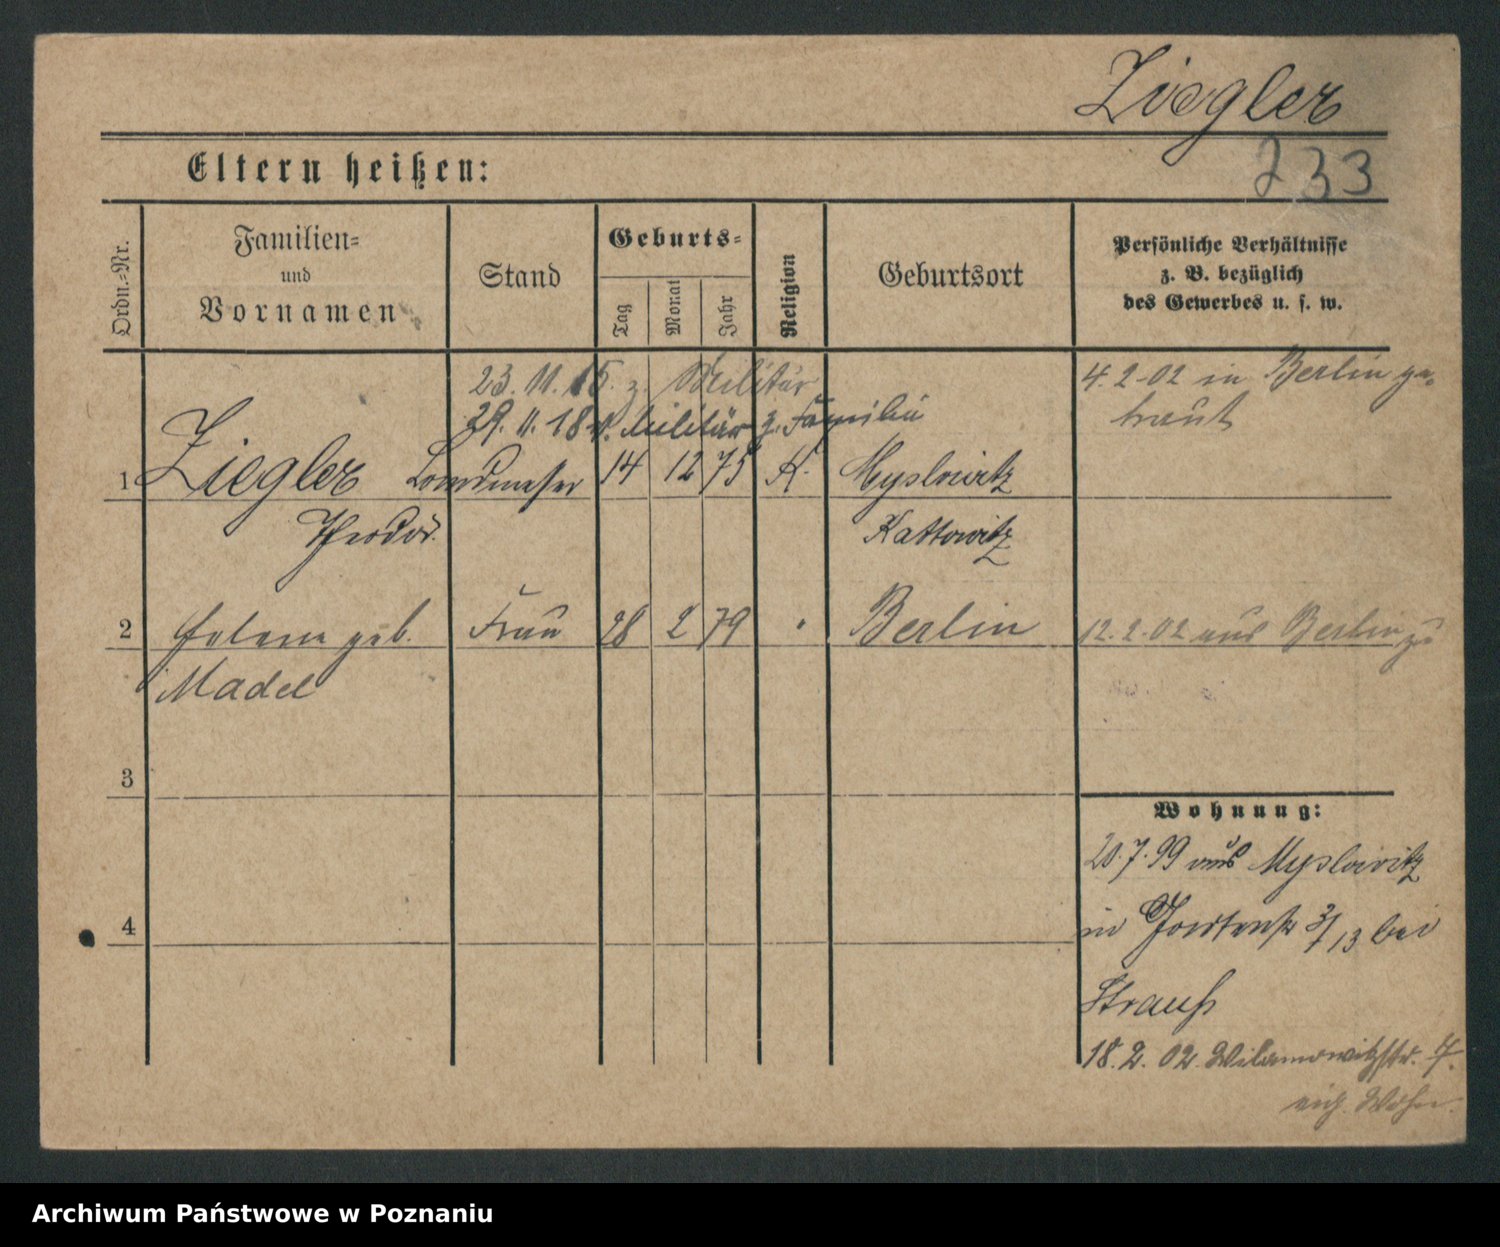 Ziegler
233
Eltern heißen:
Ordn.-Nr.
Familien-
und
Vornamen
Stand
Geburts-
Tag
Monat
Jahr
Religion
Geburtsort
Persönliche Verhältnisse
z. B. bezüglich
des Gewerbes u. s. w.
23. 11. 15. z. Militär
29. 11. 18 v. Militär z. Familie
4. 2. 02 in Berlin ge-
traut
1 Ziegler Landmesser 14 12 75 K. Myslowitz
Theodor Kattowitz
2 Helene geb. Frau 28 2 79 " Berlin 12. 2. 02 aus Berlin zu
Madel
3
Wohnung:
20. 7. 99 aus Myslowitz
4
in 3/13 bei
Strauß
18. 2. 02 Wilamowitzstr. 7.
eig. Wohn.
Archiwum Państwowe w Poznaniu